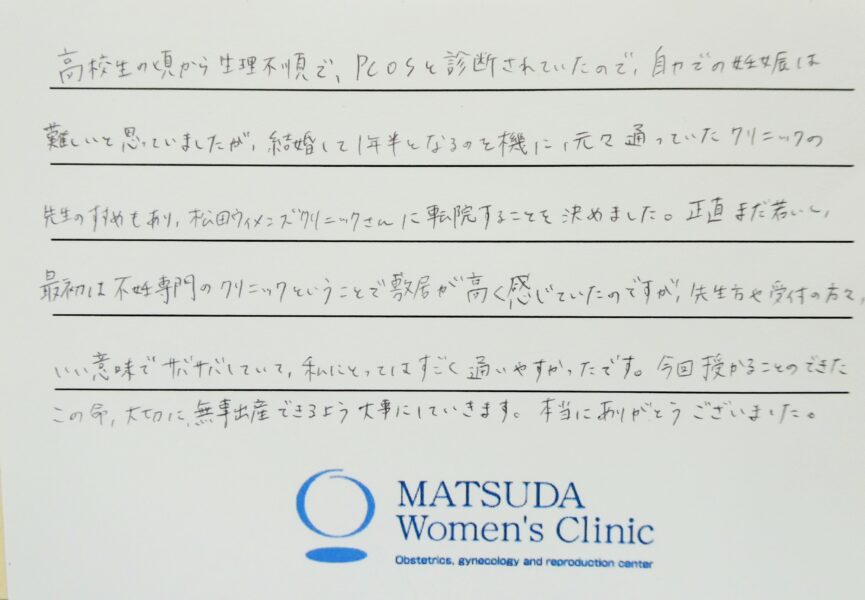 高校生の頃から生理不順で、PCOSと診断されていたので、自力での妊娠は
難しいと思っていましたが、結婚して1年半となるのを機に、元々通っていたクリニックの
先生のすすめもあり、松田ウィメンズクリニックさんに転院することを決めました。正直まだ若いし、
最初は不妊専門のクリニックということで敷居が高く感じていたのですが、先生方や受付の方々、
いい意味でサバサバしていて、私にとってはすごく通いやすかったです。今回授かることのできた
この命、大切に、無事出産できるよう大事にしていきます。本当にありがとうございました。
MATSUDA
Women's Clinic
Obstetrics, gynecology and reproduction center